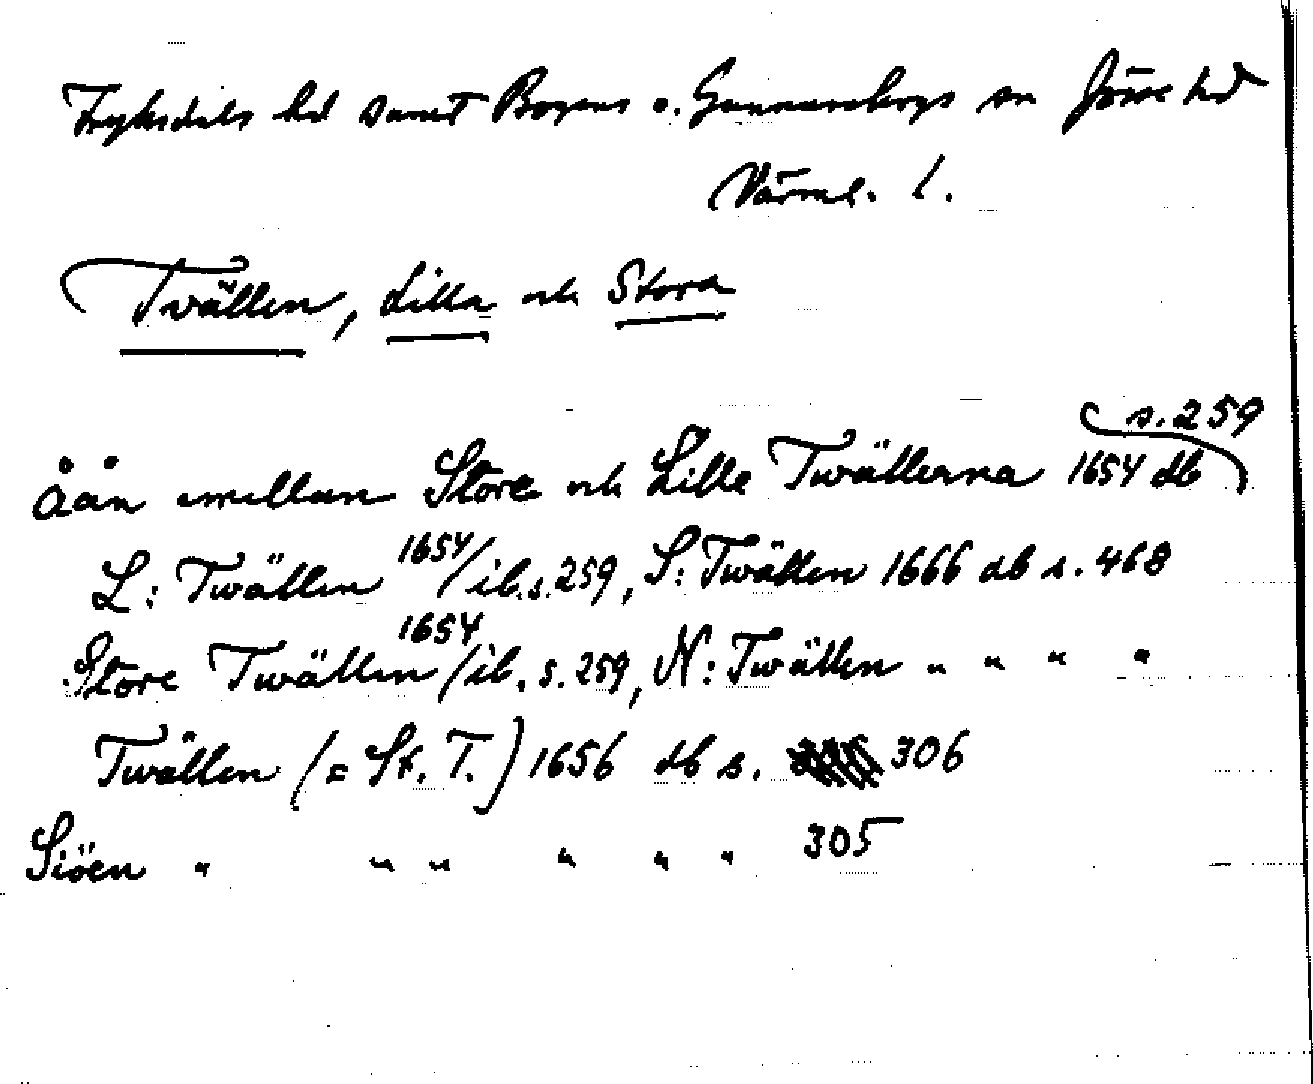 Fryksdals hd samt Bogens o. Gunnarskogs sn Jösse hd
Värml. l.
Tvällen, Lilla och Stora
s. 259
Åån emellan Store och Lille Twällerna 1654 db
L: Twällen 1654/ib. s. 259, S: Twällen 1666 db s. 468
Store Twällen 1654/ib. s. 259, N: Twällen " " " "
Twällen (= St. T.) 1656 db s. 306
Siöen " " " " " " 305